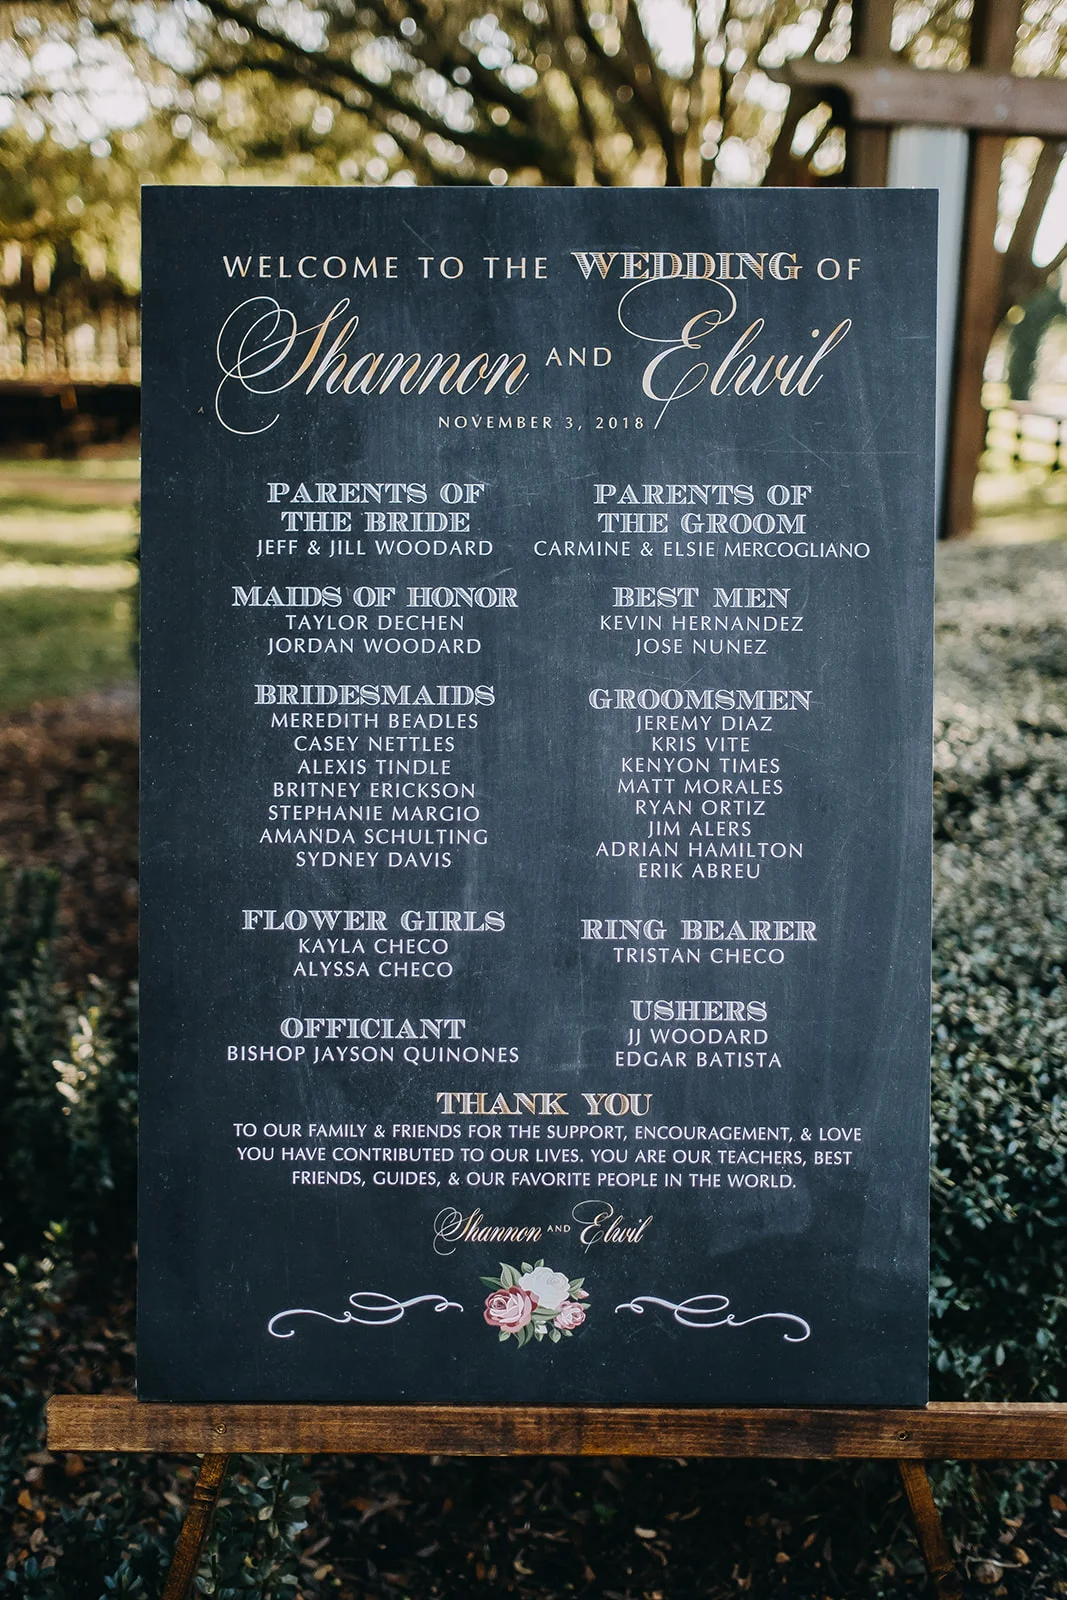 WELCOME TO THE WEDDING OF
Shannon AND Elwil
NOVEMBER 3, 2018
PARENTS OF
THE BRIDE
JEFF & JILL WOODARD
MAIDS OF HONOR
TAYLOR DECHEN
JORDAN WOODARD
BRIDESMAIDS
MEREDITH BEADLES
CASEY NETTLES
ALEXIS TINDLE
BRITNEY ERICKSON
STEPHANIE MARGIO
AMANDA SCHULTING
SYDNEY DAVIS
FLOWER GIRLS
KAYLA CHECO
ALYSSA CHECO
OFFICIANT
BISHOP JAYSON QUINONES
PARENTS OF
THE GROOM
CARMINE & ELSIE MERCOGLIANO
BEST MEN
KEVIN HERNANDEZ
JOSE NUNEZ
GROOMSMEN
JEREMY DIAZ
KRIS VITE
KENYON TIMES
MATT MORALES
RYAN ORTIZ
JIM ALERS
ADRIAN HAMILTON
ERIK ABREU
RING BEARER
TRISTAN CHECO
USHERS
JJ WOODARD
EDGAR BATISTA
THANK YOU
TO OUR FAMILY & FRIENDS FOR THE SUPPORT, ENCOURAGEMENT, & LOVE
YOU HAVE CONTRIBUTED TO OUR LIVES. YOU ARE OUR TEACHERS, BEST
FRIENDS, GUIDES, & OUR FAVORITE PEOPLE IN THE WORLD.
Shannon AND Elwil